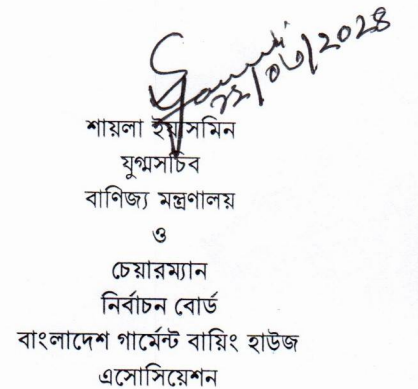 শায়লা ইয়াসমিন
যুগ্মসচিব
বাণিজ্য মন্ত্রণালয়
ও
চেয়ারম্যান
নির্বাচন বোর্ড
বাংলাদেশ গার্মেন্ট বায়িং হাউজ
এসোসিয়েশন